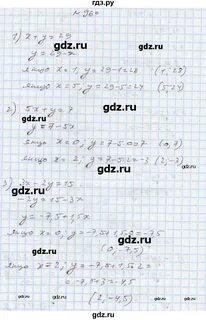 № 960
1) x + y = 29
y = 29 - x
якщо x = 1, y = 29 - 1 = 28 (1; 28)
якщо x = 5, y = 29 - 5 = 24 (5; 24)
2) 5x + y = 7
y = 7 - 5x
якщо x = 0, y = 7 - 5·0 = 7 (0; 7)
якщо x = 2, y = 7 - 5·2 = -3 (2; -3)
3) 3x - 2y = 15
-2y = 15 - 3x
y = -7,5 + 1,5x
якщо x = 0, y = -7,5 + 1,5·0 = -7,5
(0; -7,5)
якщо x = 2, y = -7,5 + 1,5·2 =
= -7,5 + 3 = -4,5
(2; -4,5)
gdz.ru